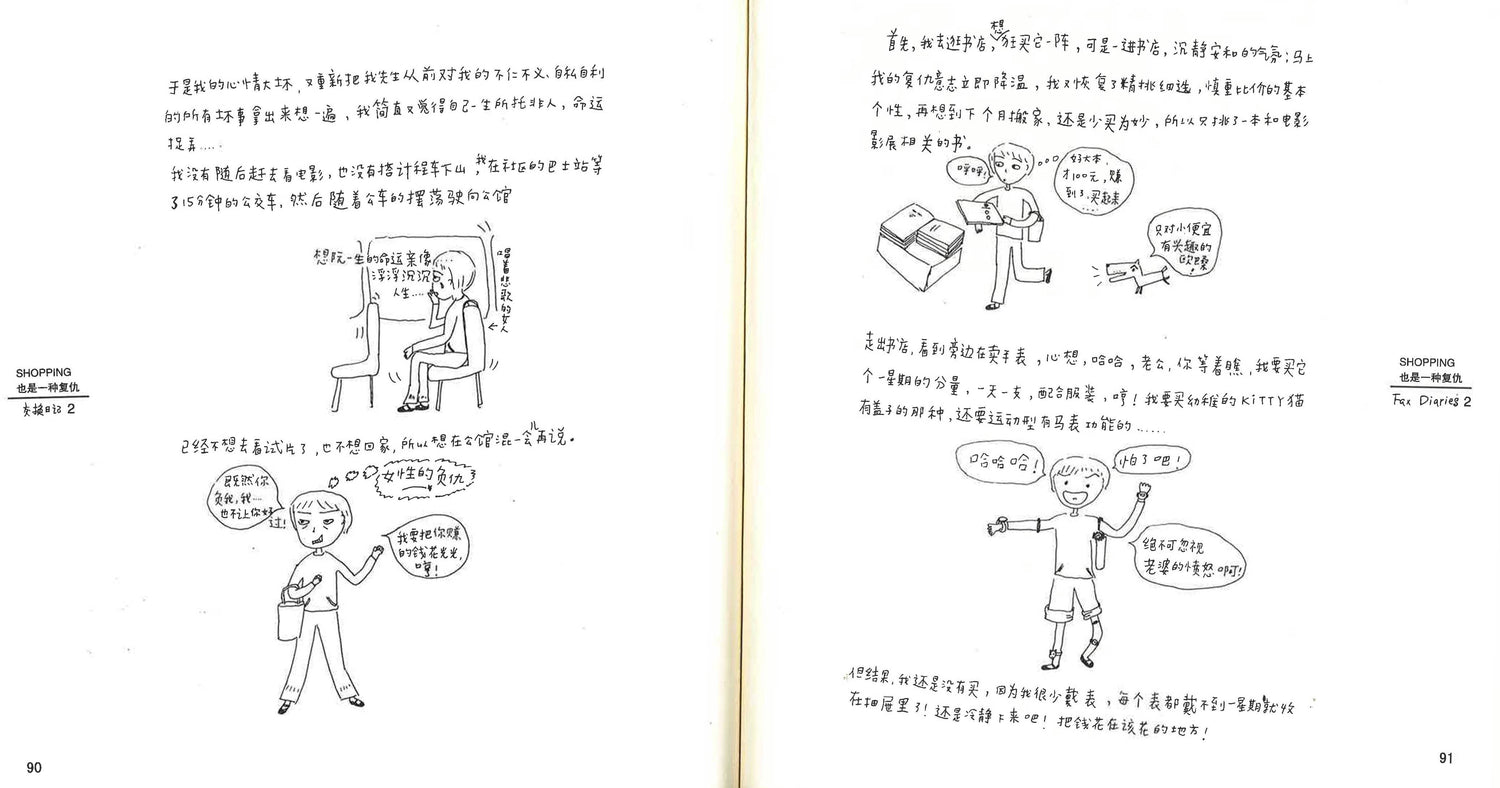 于是我的心情大坏，又重新把我先生从前对我的不仁不义、自私自利
的所有坏事拿出来想一遍，我简直又觉得自己一生所托非人，命运
捉弄....
我没有随后赶去看电影，也没有搭计程车下山，我在社区的巴士站等
了15分钟的公交车，然后随着公车的摆荡驶向公馆
想阮一生的命运亲像
浮浮沉沉
人生....
唱着悲歌的女人
SHOPPING
也是一种复仇
交换日记 2
已经不想去看试片了，也不想回家，所以想在公馆混一会儿再说。
女性的负仇
既然你
负我，我....
也不让你好
过！
我要把你赚
的钱花光光，
哼！
90
首先，我去逛书店，想狂买它一阵，可是一进书店，沉静安和的气氛；马上
我的复仇意志立即降温，我又恢复了精挑细选，慎重比价的基本
个性，再想到下个月搬家，还是少买为妙，所以只挑了一本和电影
影展相关的书。
哼哼！
好大本，
才100元，赚
到了，买起来
.....
只对小便宜
有兴趣的
欧巴桑
！
走出书店，看到旁边在卖手表，心想，哈哈，老公，你等着瞧，我要买它
个一星期的分量，一天一支，配合服装，哼！我要买幼稚的KITTY猫
有盖子的那种，还要运动型有马表功能的......
SHOPPING
也是一种复仇
Fax Diaries 2
哈哈哈！
怕了吧！
绝不可忽视
老婆的愤怒啊！
但结果，我还是没有买，因为我很少戴表，每个表都戴不到一星期就收
在抽屉里了！还是冷静下来吧！把钱花在该花的地方！
91